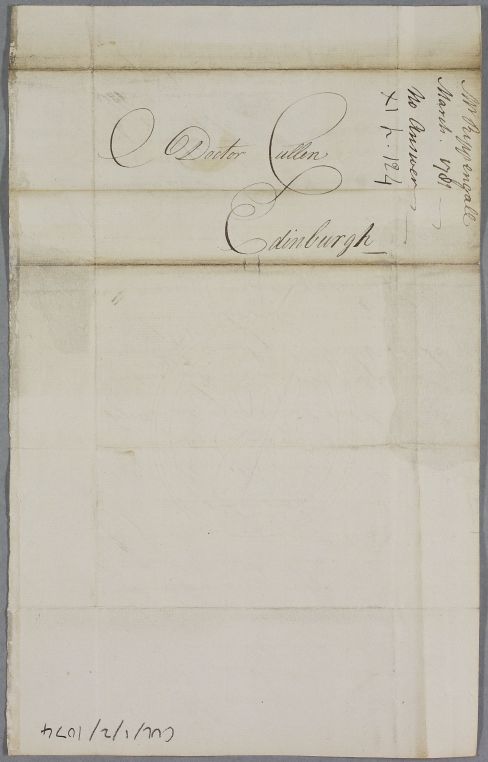 Doctor Cullen
Edinburgh
Mr Rippengall
March. 1781
No Answer
XI p. 124
CUL/1/2/1074